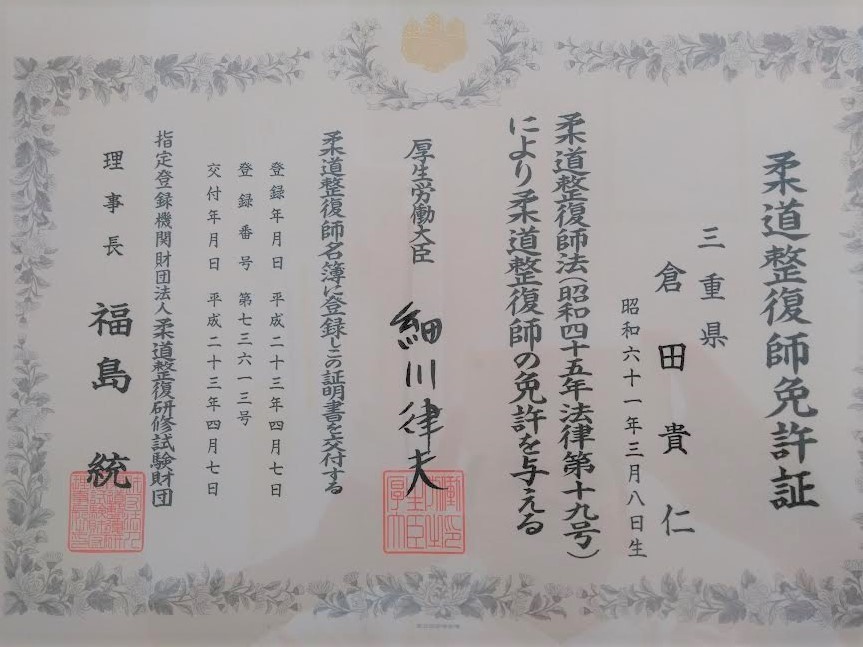 柔道整復師免許証
三重県
倉田貴仁
昭和六十一年三月八日生
柔道整復師法(昭和四十五年法律第十九号)
により柔道整復師の免許を与える
厚生労働大臣 細川律夫
柔道整復師名簿に登録しこの証明書を交付する
登録年月日 平成二十三年四月七日
登録番号 第七三六一三号
交付年月日 平成二十三年四月七日
指定登録機関財団法人柔道整復研修試験財団
理事長 福島統